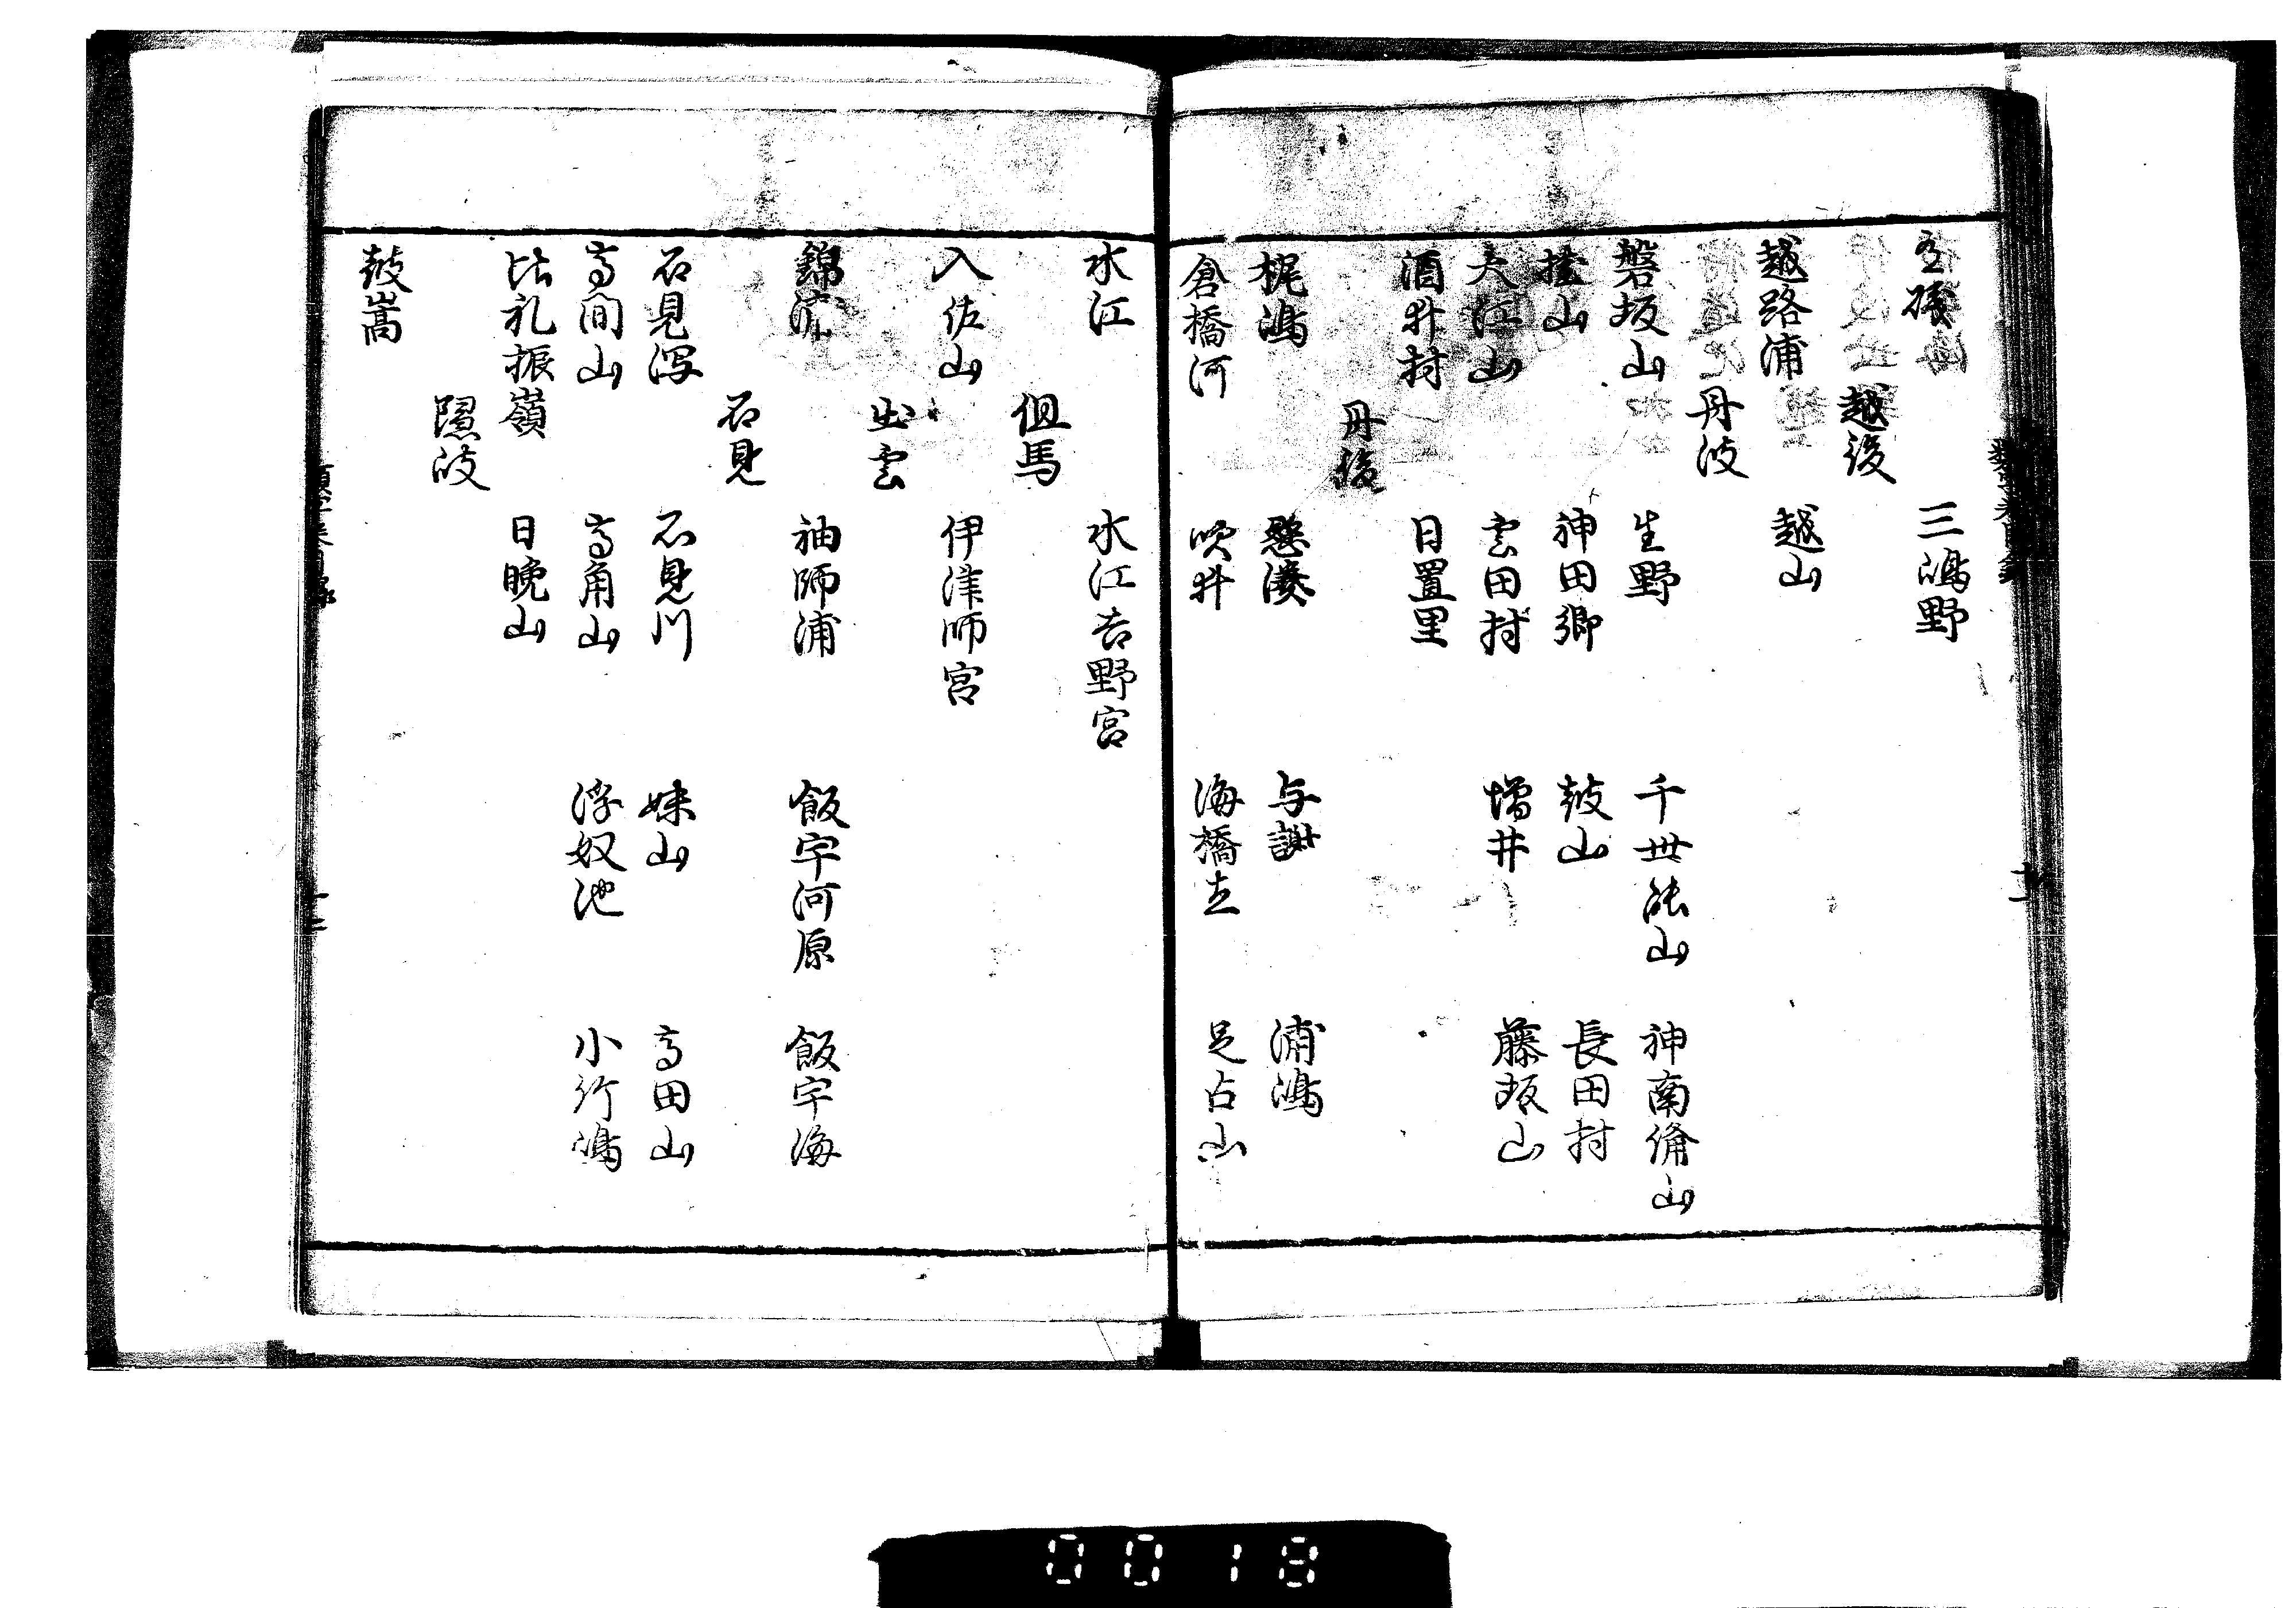 有磯　三嶋野
越後
越路浦　越山
丹波
磐坂山　生野　千世能山　神南備山
挂山　神田郷　鼓山　長田村
大江山　雲田村　増井　藤坂山
酒井村　日置里
丹後
梶嶋　懸湊　与謝　浦嶋
倉橋河　吹井　海橋立　足占山
水江　水江吉野宮
但馬
入佐山　伊津師宮
出雲
錦浦　袖師浦　飯宇河原　飯宇海
石見
石見潟　石見川　妹山　高田山
高間山　高角山　浮奴池　小竹嶋
比礼振嶺　日晩山
隠岐
鼓嵩
0018